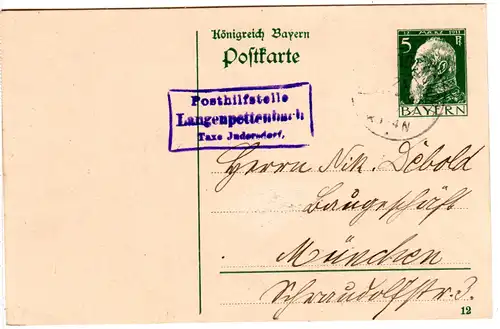 Königreich Bayern
Postkarte
12 MÄRZ 1911
5 Pf
BAYERN
Posthilfstelle
Langenpettenbach
Taxe Indersdorf.
Herrn Nik. Debold
Baugeschäft
München
Schraudolfstr. 3.
12